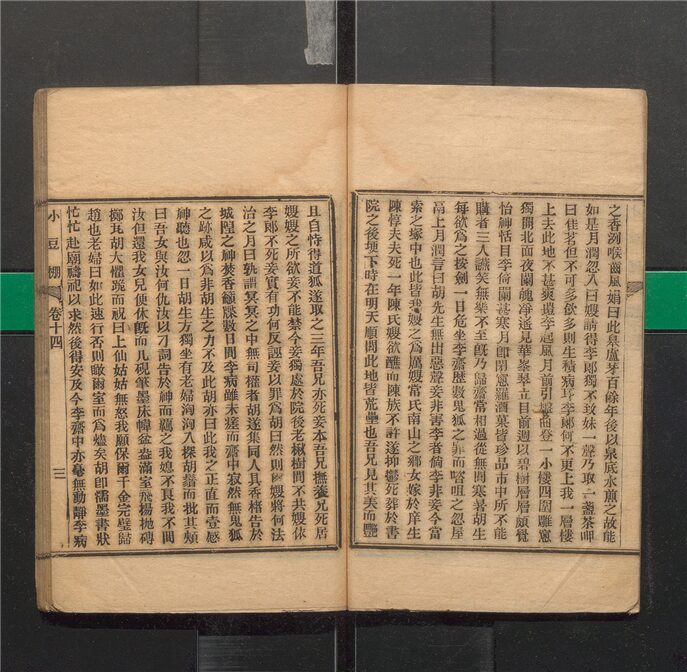 之香洌喉齒風娟曰此臬盧芽百餘年後以泉底水煎之故能
如是月潤忽入曰嫂請得李郎獨不致妹一聲乃取一盞茶呷
曰佳茗但不可多飲多則生積病身李郎何不更上我一層樓
上去此地不甚爽遣李起風月前引曲登一小樓四圍雕窓
獨開北面夜闌魄淨遙見華峯翠立目前週以碧樹層層頗覺
怡神恬目李倚闌甚寒月卽閉窓羅酒菓皆珍品市中所不能
購者三人讌笑無樂不至旣乃歸齋當相過從無間寒暑胡生
每欲爲之按劍一日危坐李齋歷數鬼狐之罪而詈咀之忽屋
鬲上月潤言曰胡先生無出惡聲妾非害李者倘李非妾今當
索之塚中也此皆我嫂之爲厲嫂常氏南山之鄕女嫁於庠生
陳惇夫夫死一年陳氏嫂欲醮而陳族不許遂抑鬱死葬於書
院之後埂下時在明天順間此地皆荒壘也吾兄見其美而艷
且自恃得道狐遂取之三年吾兄亦死妾本吾兄撫養兄死居
嫂嫂之所欲妾不能禁今妾獨處於院後老楸樹間不共嫂依
李郎不死妾實有功何反誣妾以罪爲胡曰然則爾嫂將何法
治之月曰孰謂冥冥之中無司權者胡遂集同人具香格告於
城隍之神焚香籲數日間李病雖未瘥而齋中寂然無鬼狐
之跡咸以爲非胡生之力不及此胡亦曰此我之正直而壹感
神聽也忽一日胡生方獨坐有老婦洶洶入探胡齋而批其頰
曰吾女與汝何仇汝以刁詞告於神而羈之我媳不良我不問
汝但還我女兒便休旣而几硯筆墨床幃盆盎滿室飛揚拋磚
擲瓦胡大懼跪而祝曰上仙姑姑無怒我願保爾千金完璧歸
趙也老婦曰如此速行否則瞰爾室而爲矣胡卽濡墨書狀
忙忙赴廟禱祝以求然後得安及今李齋中亦毫無動靜李病
小豆棚 卷十四 三